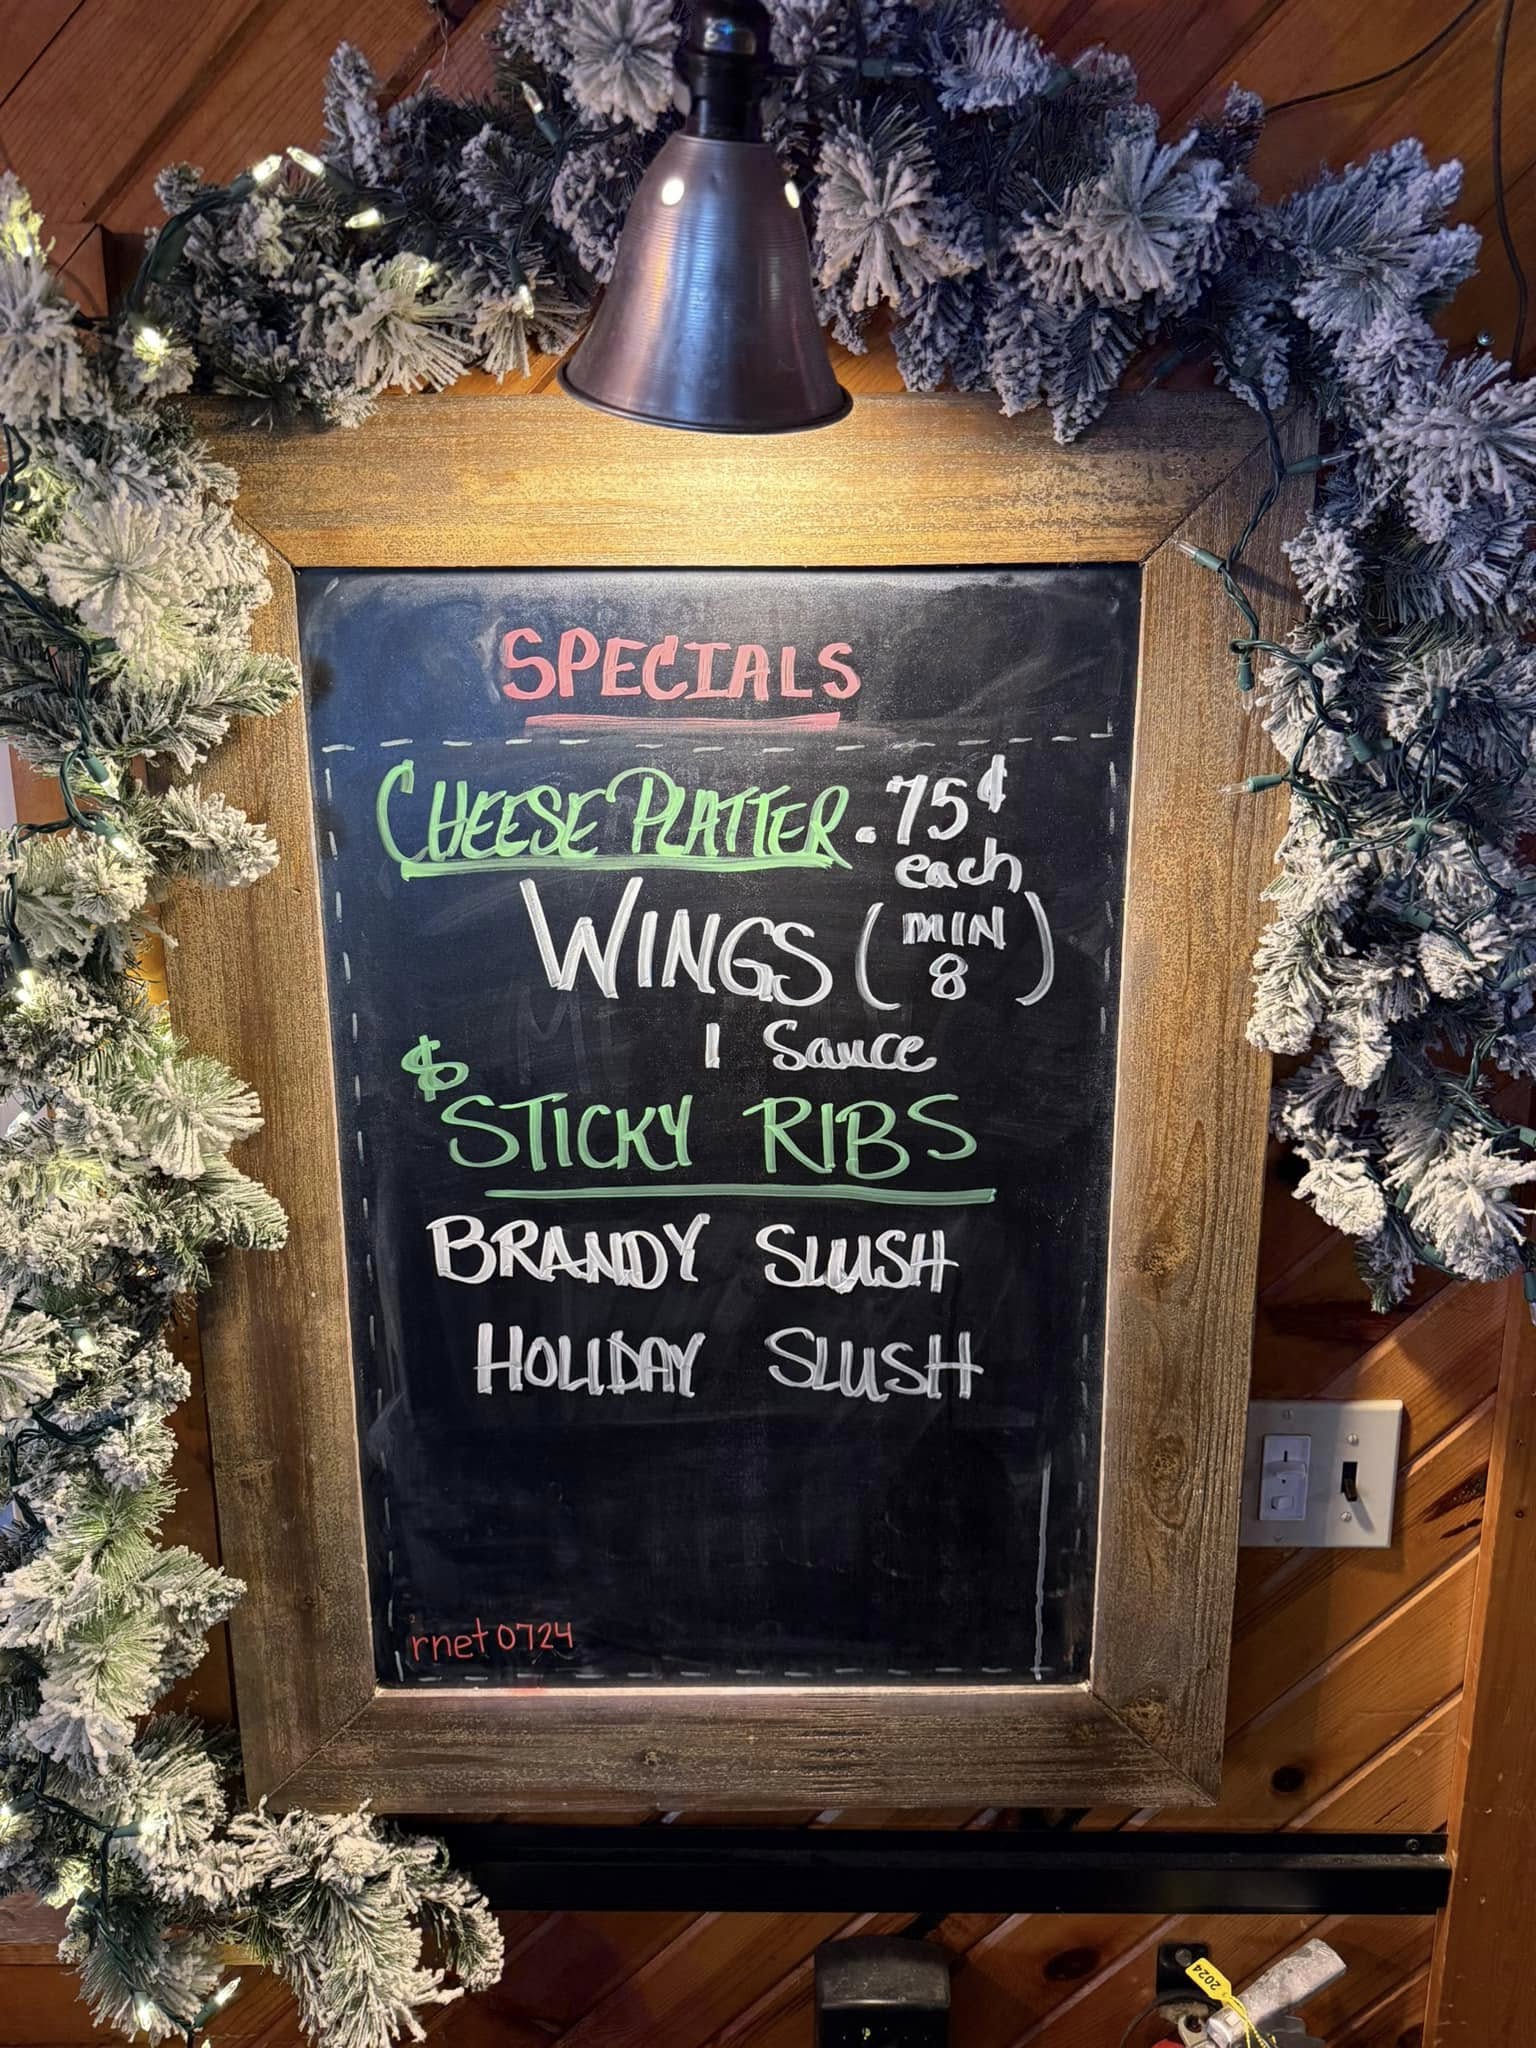 SPECIALS
CHEESE PLATTER
.75¢
each
WINGS (MIN 8)
1 Sauce
$
STICKY RIBS
BRANDY SLUSH
HOLIDAY SLUSH
rnet0724
2024